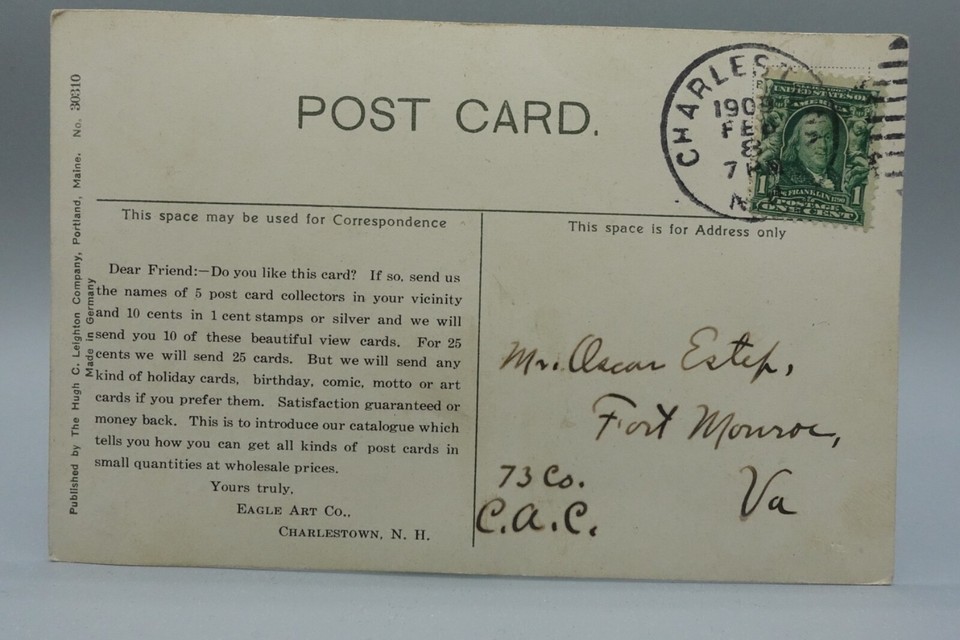 POST CARD.
CHARLEST
FEB
8
7 PM
UNITED STATES OF
AMERICA
FRANKLIN
1 POSTAGE 1
ONE CENT
Published by The Hugh C. Leighton Company, Portland, Maine. No. 30310
Made in Germany
This space may be used for Correspondence
Dear Friend:—Do you like this card? If so, send us
the names of 5 post card collectors in your vicinity
and 10 cents in 1 cent stamps or silver and we will
send you 10 of these beautiful view cards. For 25
cents we will send 25 cards. But we will send any
kind of holiday cards, birthday, comic, motto or art
cards if you prefer them. Satisfaction guaranteed or
money back. This is to introduce our catalogue which
tells you how you can get all kinds of post cards in
small quantities at wholesale prices.
Yours truly,
EAGLE ART CO.,
CHARLESTOWN, N. H.
This space is for Address only
Mr. Oscar Estep,
Fort Monroe,
Va
73 Co.
C.A.C.